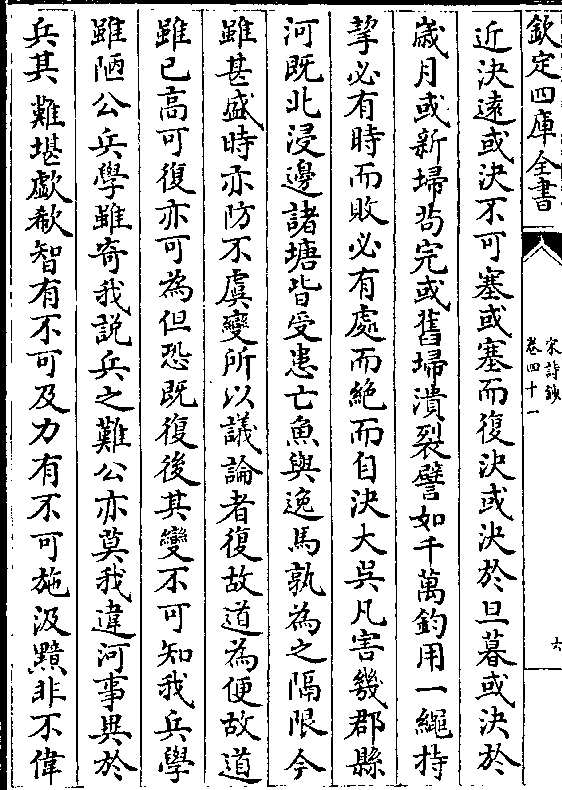 欽定四庫全書
宋詩鈔
卷四十一
六
近決遠或決不可塞或塞而復決或決於旦暮或決於
歲月或新埽茍完或舊埽潰裂譬如千萬鈞用一繩持
挈必有時而敗必有處而絶而自決大吳凡害幾郡縣
河既北浸邊諸塘皆受患亡魚與逸馬孰為之隔限今
雖甚盛時亦防不虞變所以議論者復故道為便故道
雖已高可復亦可為但恐既復後其變不可知我兵學
雖陋公兵學雖奇我說兵之難公亦莫我違河事與於
兵其難堪歔欷智有不可及力有不可施汲黯非不偉